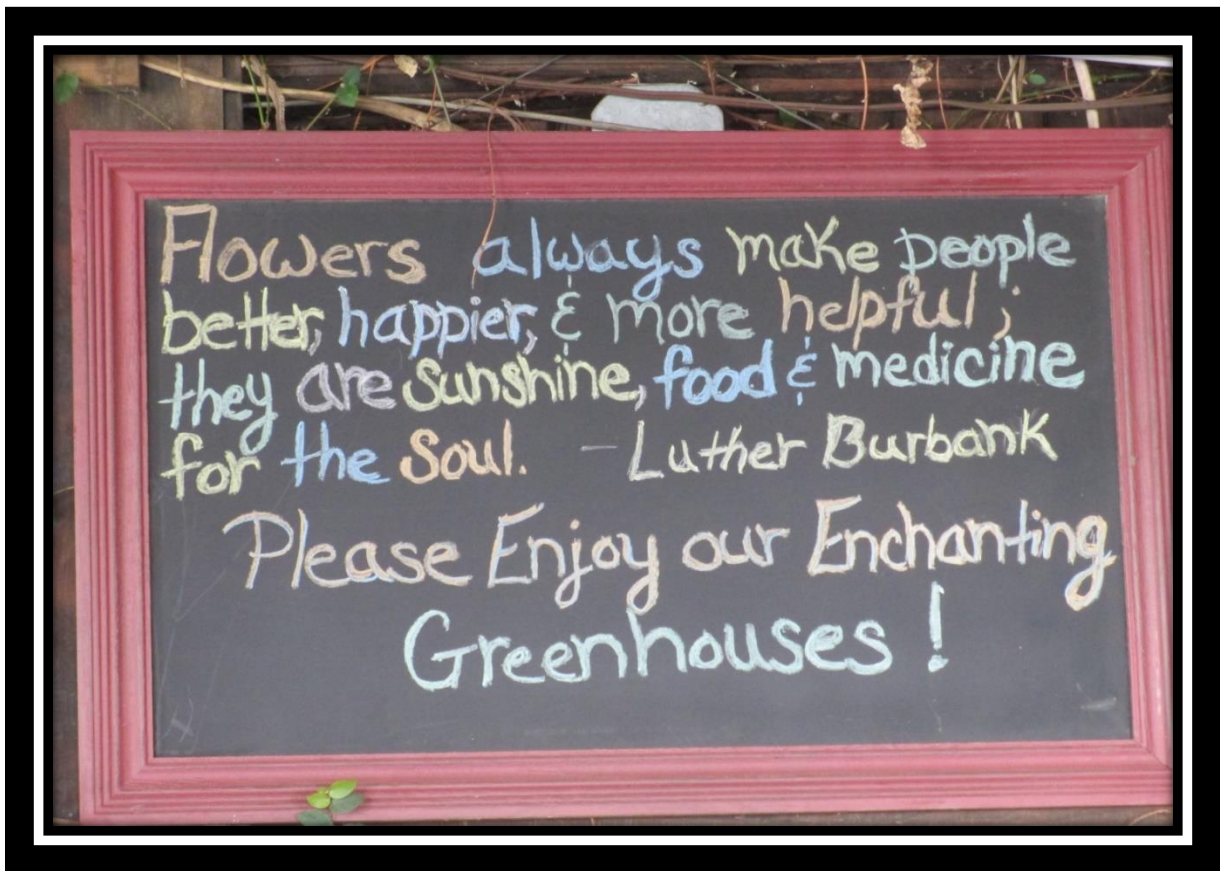 Flowers always make people
better, happier, & more helpful;
they are sunshine, food & medicine
for the Soul. - Luther Burbank
Please Enjoy our Enchanting
Greenhouses!